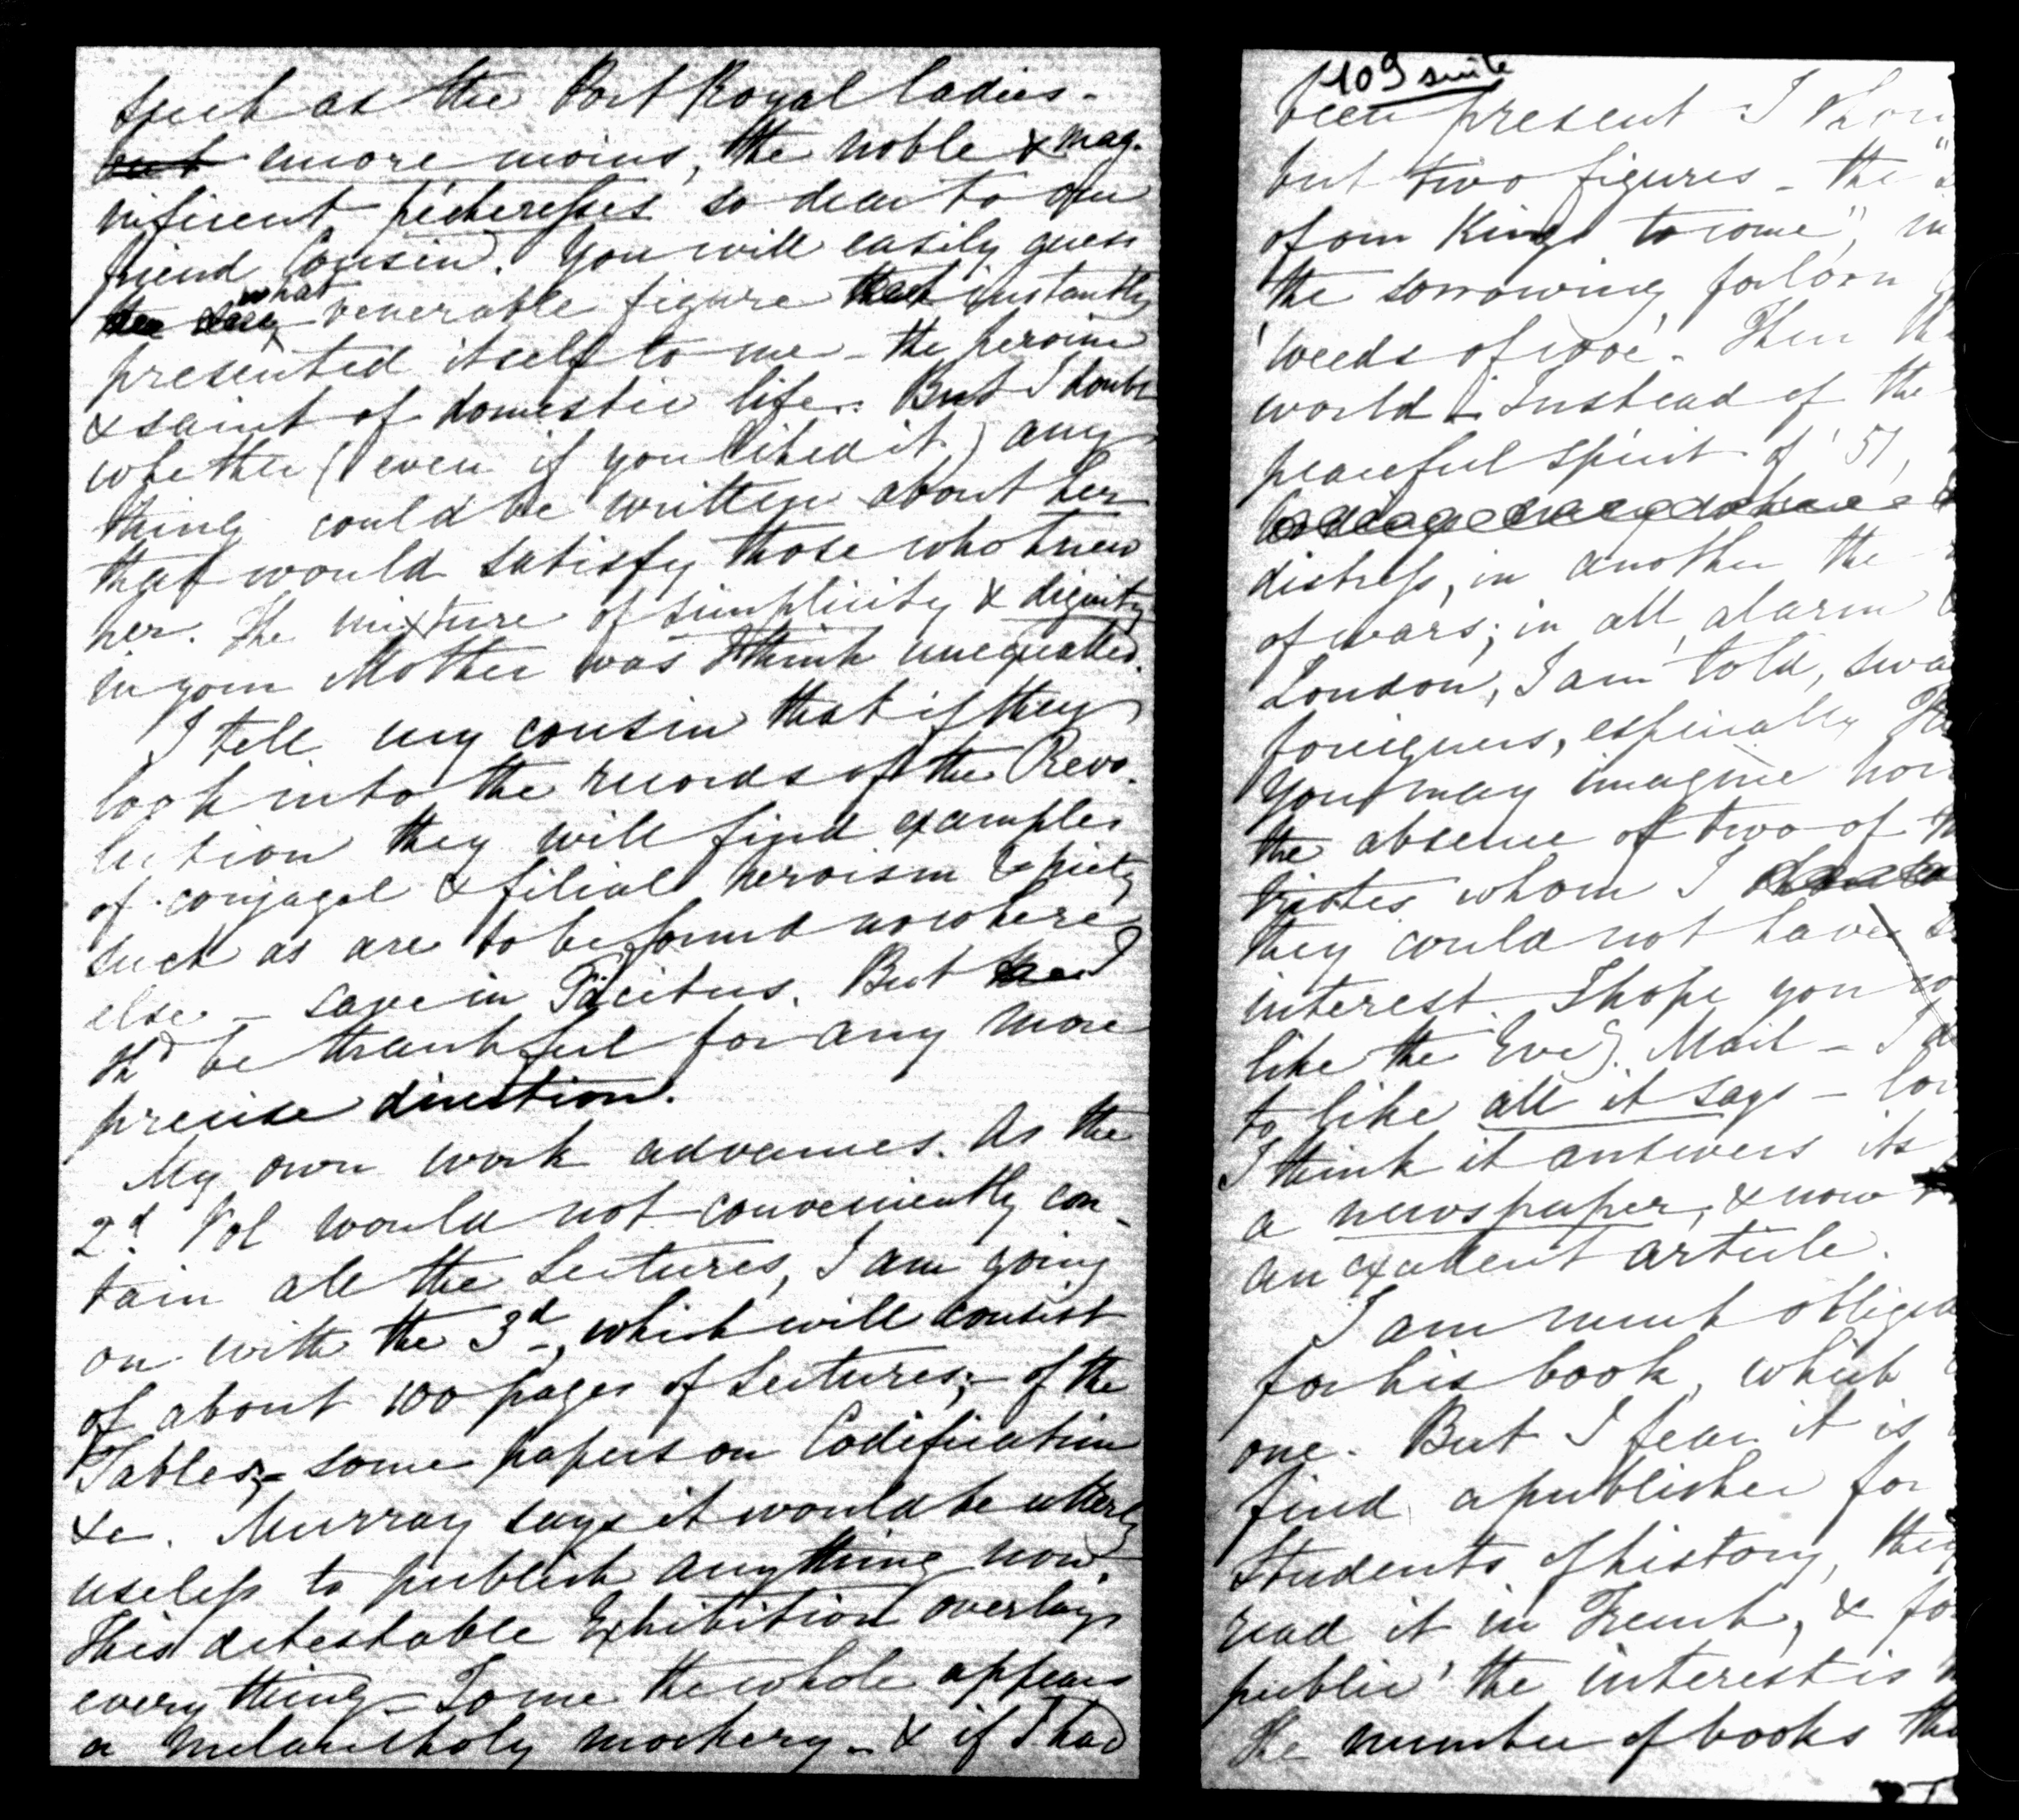 such as the Port Royal ladies -
but encore moins, the noble & mag-
nificent pécheresses so dear to our
friend Cousin. You will easily guess
what venerable figure that instantly
presented itself to me - the heroine
& saint of domestic life. But I doubt
whether (even if you liked it) any
thing could be written about her
that would satisfy those who knew
her. The mixture of simplicity & dignity
in your Mother was I think unequalled.
I tell my cousin that if they
look into the records of the Revo-
lution they will find examples
of conjugal & filial heroism & piety
such as are to be found nowhere
else - save in Tacitus. But I
shd be thankful for any more
precise direction.
My own work advances. As the
2d. Vol would not conveniently con-
tain all the Lectures, I am going
on with the 3d, which will consist
of about 100 pages of Lectures; - of the
Tables; - some papers on Codification
&c. Murray says it would be utterly
useless to publish anything now.
This detestable Exhibition overlays
every thing - To me the whole appears
a melancholy mockery - & if I had
109 suite
been present I shou
but two figures - the "
of our Kings to come", in
the sorrowing forlorn
'weeds of woe'. Then th
world - Instead of the
peaceful spirit of '51,
distress, in another the
of wars; in all, alarm
London, I am told, swa
foreigners, especially
You may imagine ho
the absence of two of
triotes whom I
they could not have
interest. I hope you
like the Eveg. Mail - I d
to like all it says - 
I think it answers its
a newspaper, & now
an excellent article.
I am much oblige
for his book, which
one. But I fear it is
find a publisher for
Students of history, they
read it in French, & fo
public' the interest is
the number of books tha